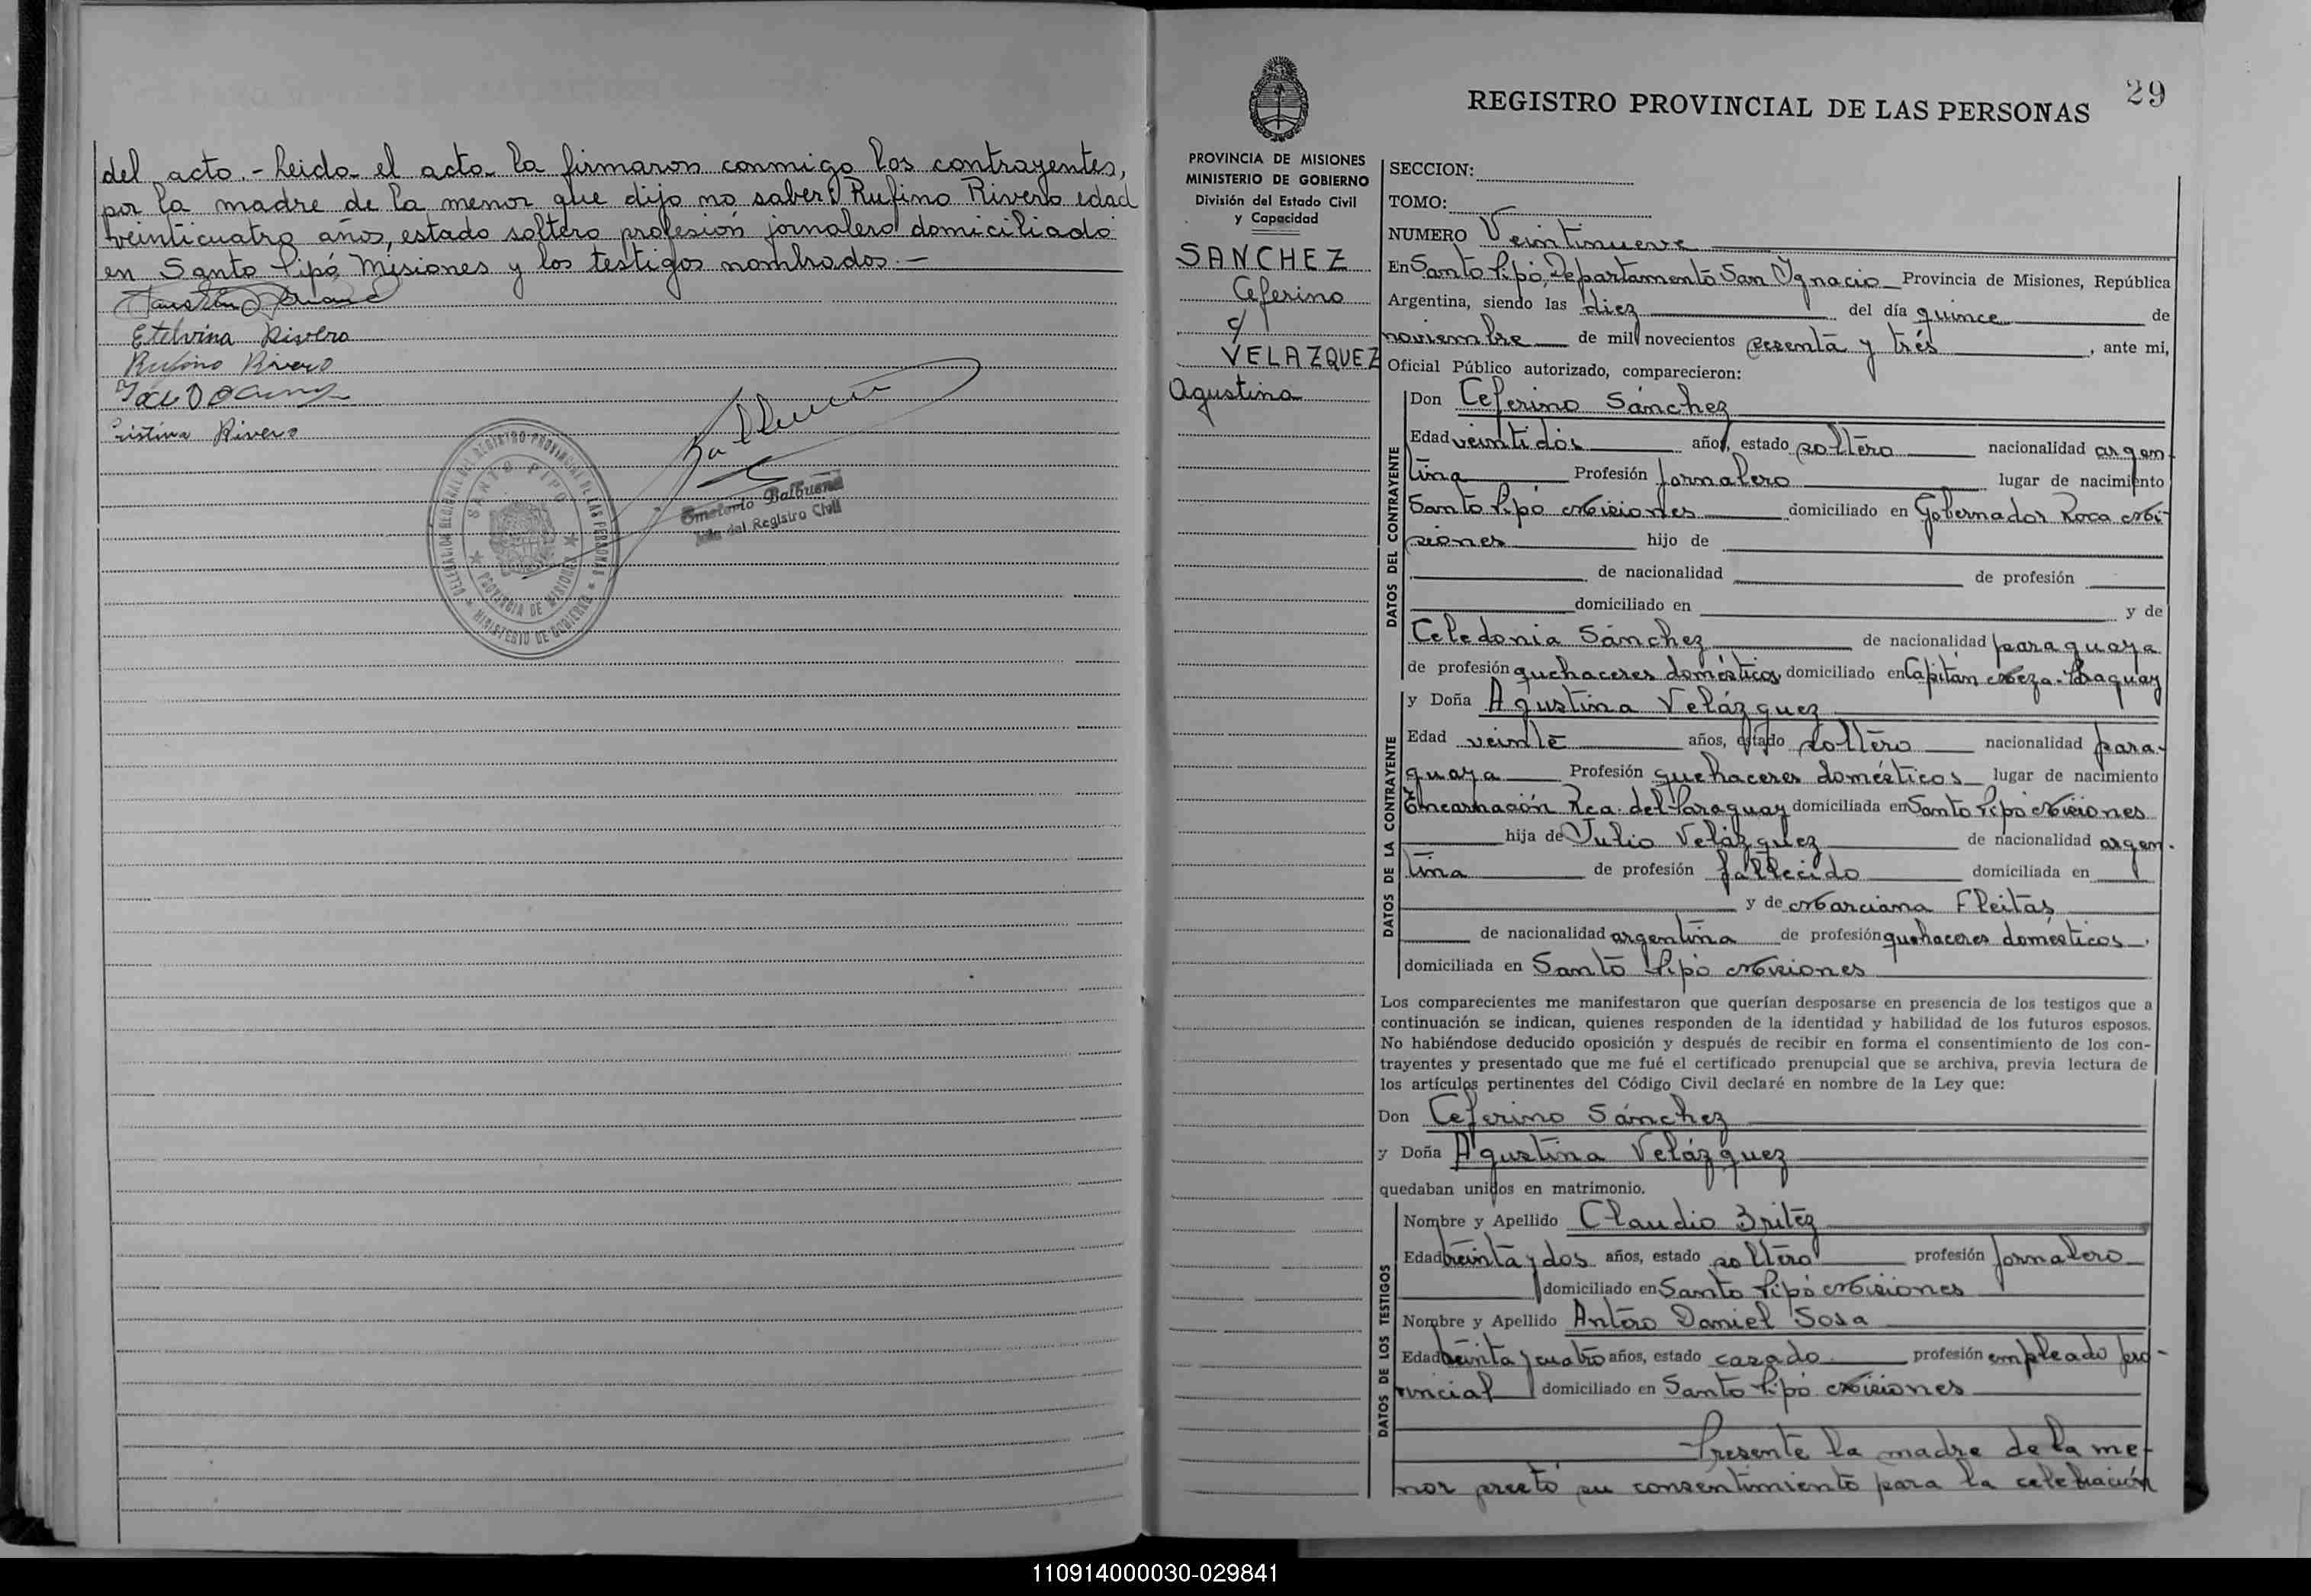 del acto.- Leida el acta la firmaron conmigo los contrayentes,
por la madre de la menor que dijo no saber Rufino Rivero edad
veinticuatro años, estado soltero profesión jornalero domiciliado
en Santo Pipó Misiones y los testigos nombrados.-
Etelvina Rivero
Rufino Rivero
Cristina Rivero
DELEGACION REGIONAL DEL REGISTRO PROVINCIAL DE LAS PERSONAS
SANTO PIPO
PROVINCIA DE MISIONES
MINISTERIO DE GOBIERNO
Emeterio Balbuena
Jefe del Registro Civil
29
REGISTRO PROVINCIAL DE LAS PERSONAS
PROVINCIA DE MISIONES
MINISTERIO DE GOBIERNO
División del Estado Civil
y Capacidad
SANCHEZ
Ceferino
c/
VELAZQUEZ
Agustina
SECCION:
TOMO:
NUMERO Veintinueve
En Santo Pipó, Departamento San Ignacio Provincia de Misiones, República
Argentina, siendo las diez del día quince de
noviembre de mil novecientos sesenta y tres, ante mi,
Oficial Público autorizado, comparecieron:
DATOS DEL CONTRAYENTE
Don Ceferino Sánchez
Edad veintidós años, estado soltero nacionalidad argen-
tina Profesión jornalero lugar de nacimiento
Santo Pipó Misiones domiciliado en Gobernador Roca Mi-
siones hijo de
de nacionalidad de profesión
domiciliado en y de
Celedonia Sánchez de nacionalidad paraguaya
de profesión quehaceres domésticos domiciliado en Capitán Meza-Paraguay
DATOS DE LA CONTRAYENTE
y Doña Agustina Velázquez
Edad veinte años, estado soltero nacionalidad para-
guaya Profesión quehaceres domésticos lugar de nacimiento
Encarnación Rca. del Paraguay domiciliada en Santo Pipó Misiones
hija de Julio Velázquez de nacionalidad argen-
tina de profesión fallecido domiciliada en
y de Marciana Fleitas
de nacionalidad argentina de profesión quehaceres domésticos
domiciliada en Santo Pipó Misiones
Los comparecientes me manifestaron que querían desposarse en presencia de los testigos que a
continuación se indican, quienes responden de la identidad y habilidad de los futuros esposos.
No habiéndose deducido oposición y después de recibir en forma el consentimiento de los con-
trayentes y presentado que me fué el certificado prenupcial que se archiva, previa lectura de
los artículos pertinentes del Código Civil declaré en nombre de la Ley que:
Don Ceferino Sánchez
y Doña Agustina Velázquez
quedaban unidos en matrimonio.
DATOS DE LOS TESTIGOS
Nombre y Apellido Claudio Britez
Edad treinta y dos años, estado soltero profesión jornalero
domiciliado en Santo Pipó Misiones
Nombre y Apellido Antero Daniel Sosa
Edad treinta y cuatro años, estado casado profesión empleado pro-
vincial domiciliado en Santo Pipó Misiones
Presente la madre de la me-
nor prestó su consentimiento para la celebración
110914000030-029841